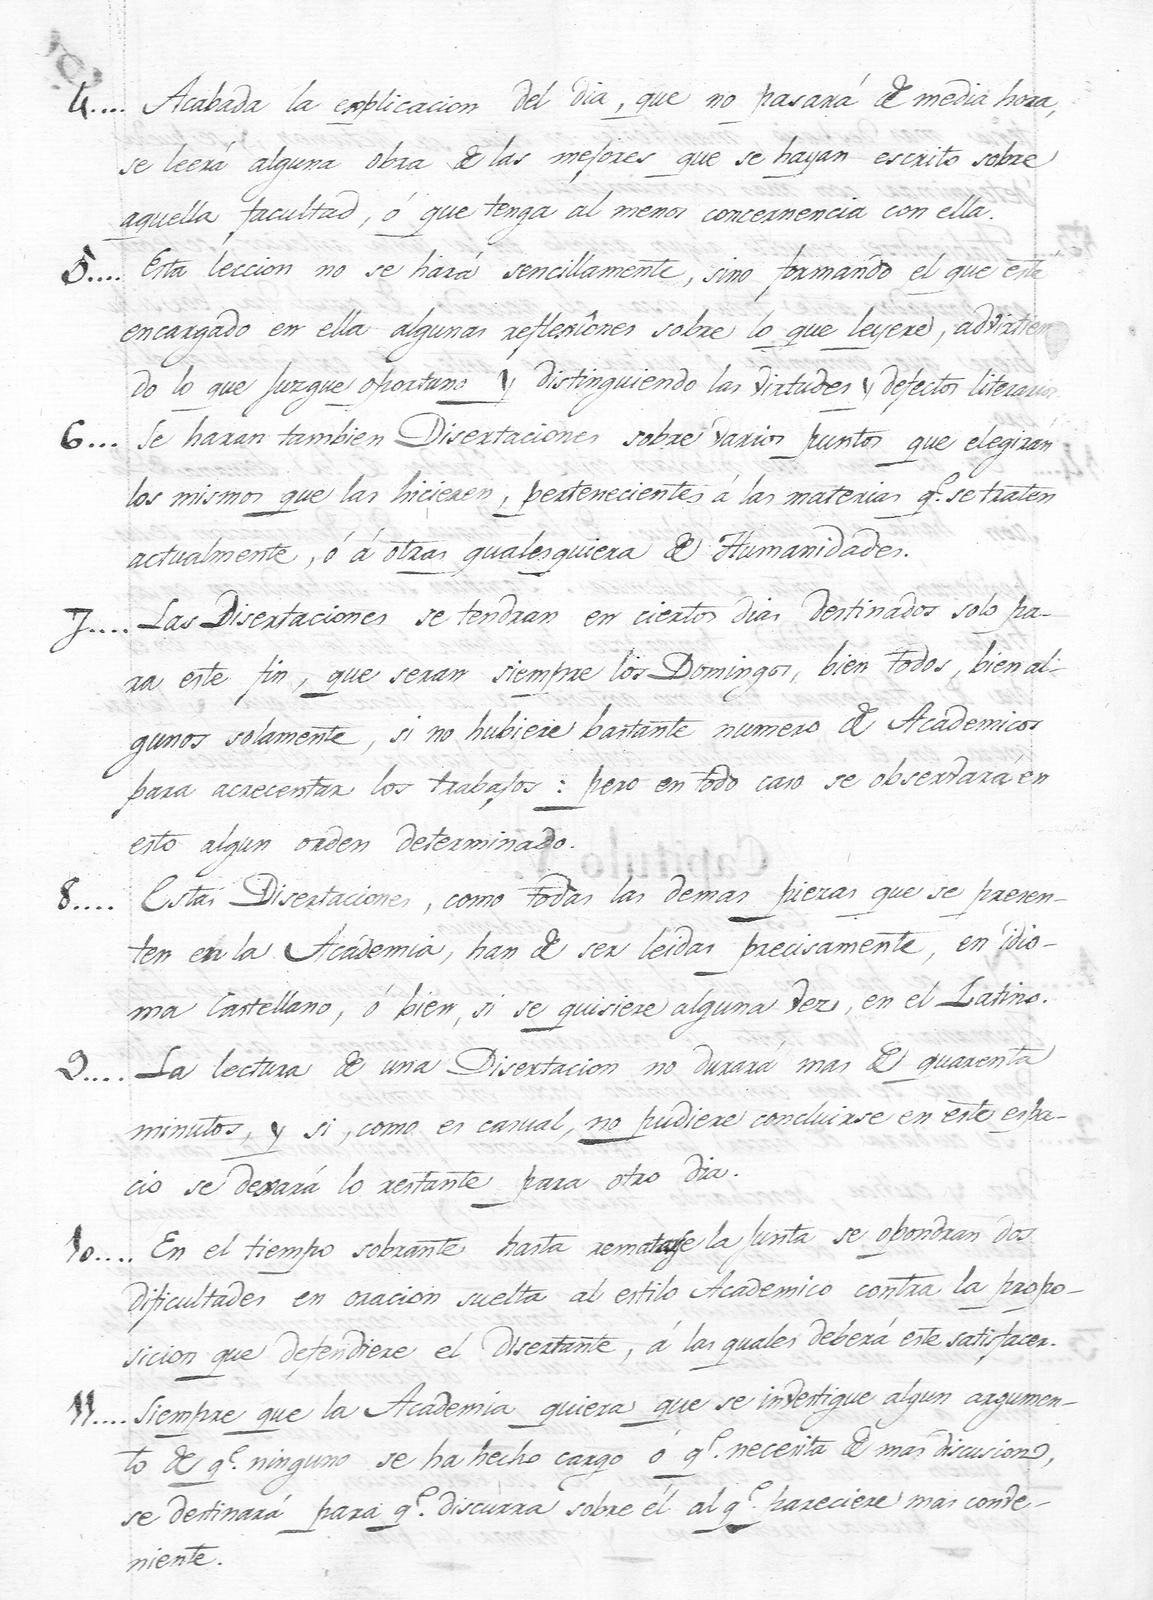 4.... Acabada la explicacion del dia, que no pasará de media hora,
se leerá alguna obra de las mejores que se hayan escrito sobre
aquella facultad, ó que tenga ál menos concernencia con ella.
5.... Esta leccion no se hará sencillamente, sino formando el que está
encargado en ella algunas reflexîones sobre lo que leyere, advirtien
do lo que juzgue oportuno y distinguiendo las virtudes y defectos literarios.
6... Se haran tambien Disertaciones sobre varios puntos que elegirán
los mismos que las hicieren, pertenecientes á las materias q.e se traten
actualmente, ó á otras qualesquiera de Humanidades.
7.... Las Disertaciones se tendran en ciertos dias destinados solo pa-
ra este fin, que seran siempre los Domingos, bien todos, bien al-
gunos solamente, si no hubiere bastante numero de Academicos
para acrecentar los trabajos: pero en todo caso se observará en
esto algun orden determinado.
8.... Estas Disertaciones, como todas las demas piezas que se presen-
ten en la Academia, han de ser leidas precisamente, en idio-
ma Castellano, ó bien, si se quisiere alguna vez, en el Latino.
9.... La lectura de una Disertacion no durará mas de quarenta
minutos, y si, como es casual, no pudiere concluirse en este espa-
cio se dexará lo restante para otro dia.
10.... En el tiempo sobrante hasta rematarse la Junta se opondran dos
dificultades en oracion suelta al estilo Academico contra la propo-
sicion que defendiere el disertante, á las quales deberá este satisfacer.
11.... Siempre que la Academia quiera que se investigue algun argumen-
to de q.e ninguno se ha hecho cargo ó q.e necesita de mas discusion,
se destinará para q.e discurra sobre él al q.e pareciere mas conve-
niente.